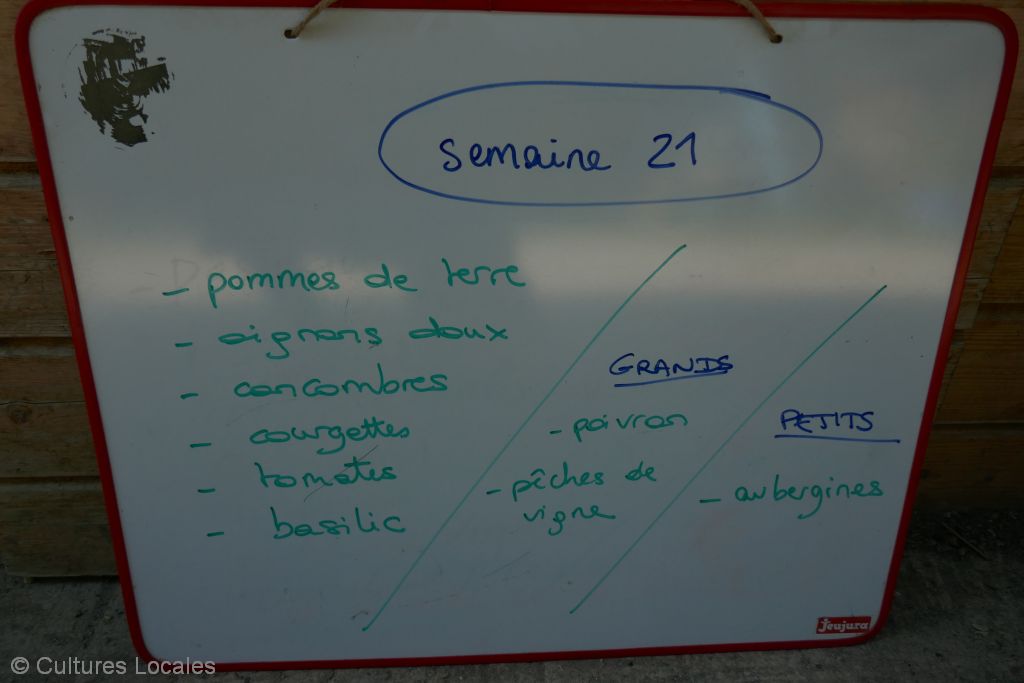 semaine 21
- pommes de terre
- oignons doux
- concombres
- courgettes
- tomates
- basilic
GRANDS
- poivron
- pêches de
vigne
PETITS
- aubergines
Jeujura
© Cultures Locales